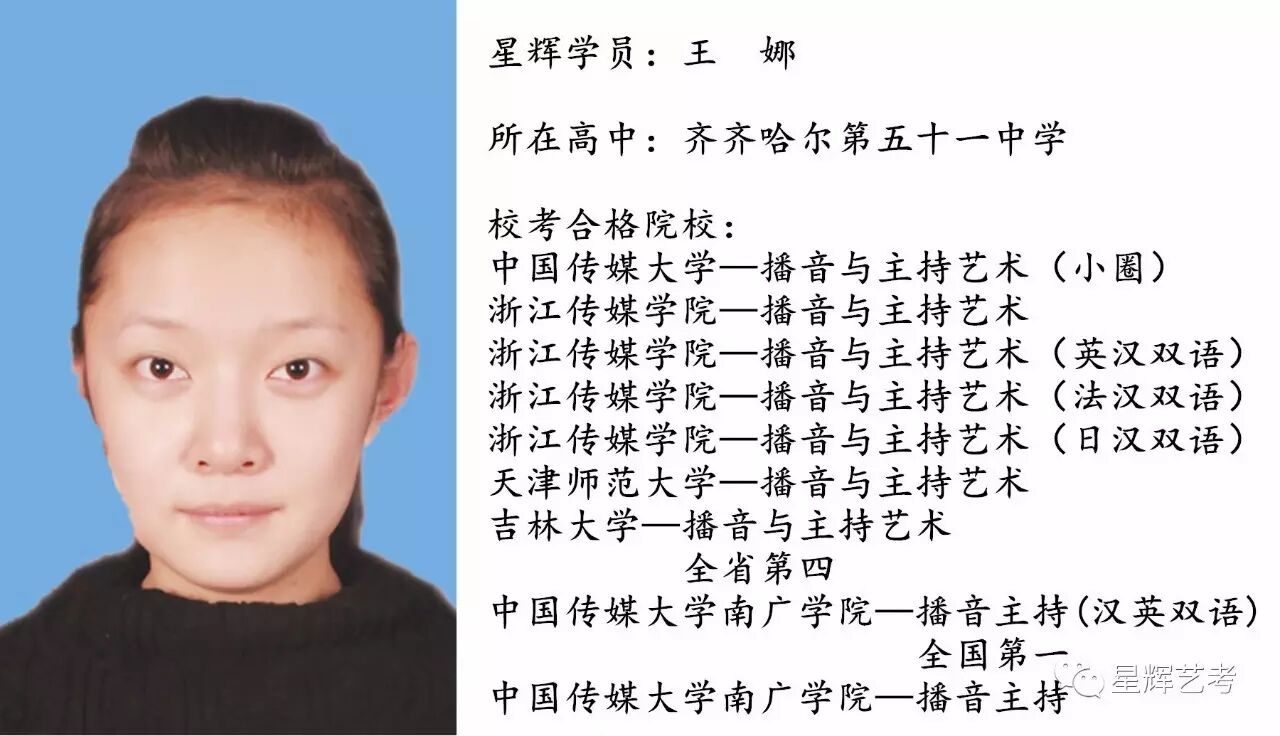 星辉学员：王　娜
所在高中：齐齐哈尔第五十一中学
校考合格院校：
中国传媒大学—播音与主持艺术（小圈）
浙江传媒学院—播音与主持艺术
浙江传媒学院—播音与主持艺术（英汉双语）
浙江传媒学院—播音与主持艺术（法汉双语）
浙江传媒学院—播音与主持艺术（日汉双语）
天津师范大学—播音与主持艺术
吉林大学—播音与主持艺术
全省第四
中国传媒大学南广学院—播音主持(汉英双语)
全国第一
中国传媒大学南广学院—播音主持
星辉艺考